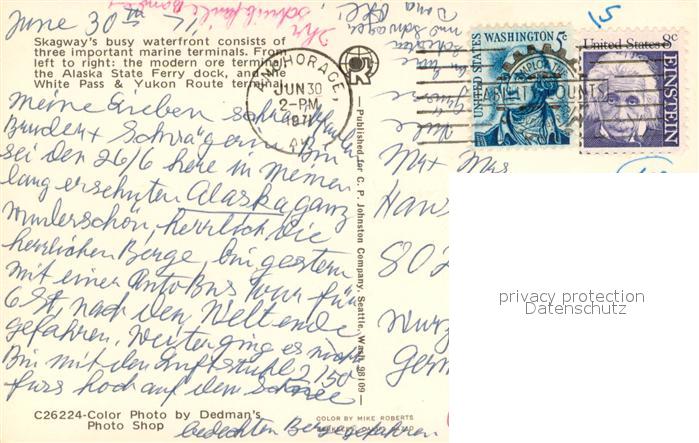 June 30th 71
Skagway's busy waterfront consists of
three important marine terminals. From
left to right: the modern ore terminal,
the Alaska State Ferry dock, and the
White Pass & Yukon Route terminal.
Meine Lieben
Bruder + Schwägerin Bin
seit den 26/6 here in meinen
lang ersehnten Alaska ganz
wunderschön, herrlich die
herrlichen Berge, bin gestern
mit einer AutoBus Tour für
6 St. nach den Welt ende
gefahren. Weiter ging es nicht
Bin mit den Luftstuhl 2150
fuss hoch auf dem Schnee
bedeckten Berge gefahren
C26224-Color Photo by Dedman's
Photo Shop
COLOR BY MIKE ROBERTS
—Published for C. P. Johnston Company, Seattle, Wash. 98109—
ANCHORAGE,
JUN 30
2-PM
1971
UNITED STATES
WASHINGTON 5c
United States 8c
EINSTEIN
15
Mr + Mrs
Hans
802
Wurz
Germ
privacy protection
Datenschutz